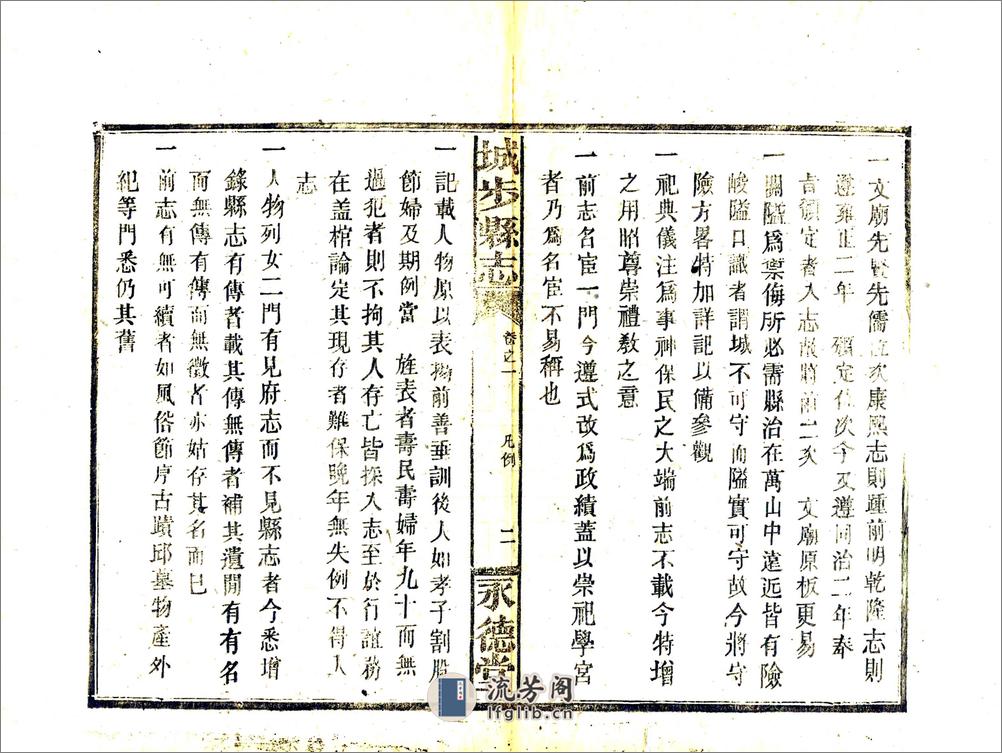 一文廟先賢先儒位次康熙志則踵前明乾隆志則
遵雍正二年 頒定位次今又遵同治二年奉
旨頒定者入志故將前二次 文廟原板更易
一關隘爲禦侮所必需縣治在萬山中遠近皆有險
峻隘口識者謂城不可守而隘實可守故今將守
險方畧特加詳記以備參觀
一祀典儀注爲事神保民之大端前志不載今特增
之用昭尊崇禮敎之意
一前志名宦一門今遵式改爲政績蓋以崇祀學宮
者乃爲名宦不易稱也
城步縣志
卷之一
凡例
二
永德堂
一記載人物原以表揚前善垂訓後人如孝子割股
節婦及期例當 旌表者壽民壽婦年九十而無
過犯者則不拘其人存亡皆採入志至於行誼務
在盖棺論定其現存者難保晚年無失例不得入
志
一人物列女二門有見府志而不見縣志者今悉增
錄縣志有傳者載其傳無傳者補其遺間有有名
而無傳有傳而無徵者亦姑存其名而已
一前志有無可續者如風俗節序古蹟邱墓物產外
紀等門悉仍其舊
流芳阁
lfglib.cn